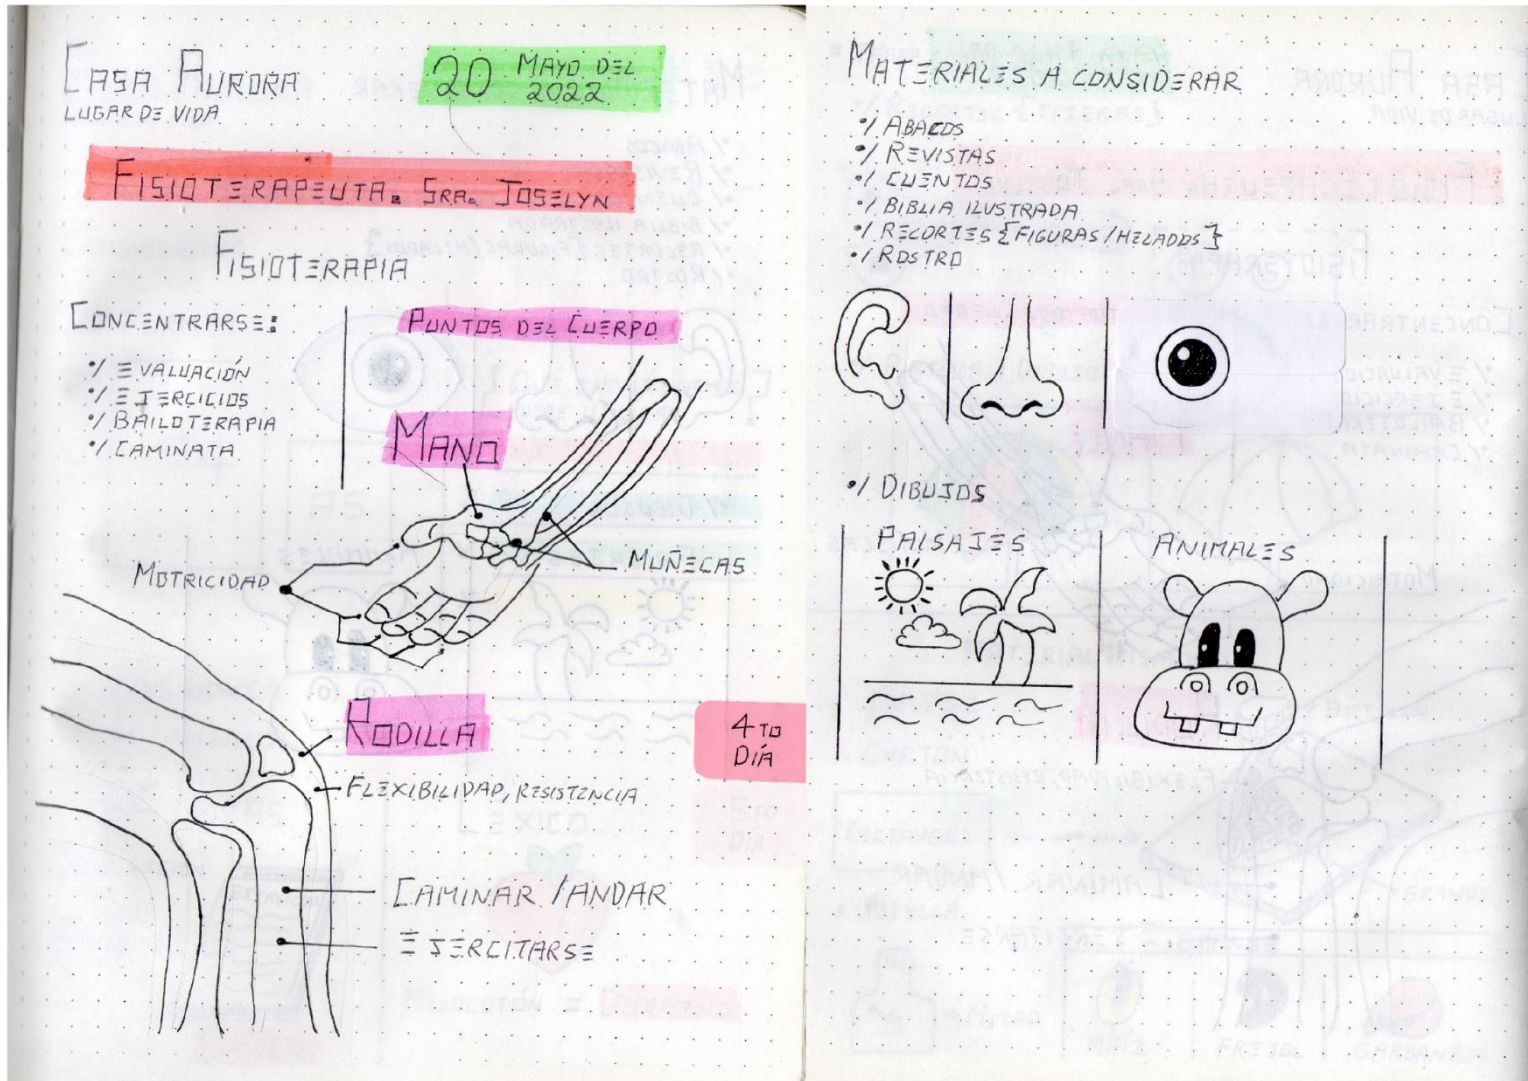 CASA AURORA
LUGAR DE VIDA
20 MAYO DEL 2022
FISIOTERAPEUTA. SRA. JOSELYN
FISIOTERAPIA
CONCENTRARSE:
•/ EVALUACIÓN
•/ EJERCICIOS
•/ BAILOTERAPIA
•/ CAMINATA
PUNTOS DEL CUERPO
MANO
MUÑECAS
MOTRICIDAD
RODILLA
FLEXIBILIDAD, RESISTENCIA
4TO
DÍA
CAMINAR / ANDAR
EJERCITARSE
MATERIALES A CONSIDERAR
•/ ABACOS
•/ REVISTAS
•/ CUENTOS
•/ BIBLIA ILUSTRADA
•/ RECORTES {FIGURAS/HELADOS}
•/ ROSTRO
•/ DIBUJOS
PAISAJES
ANIMALES